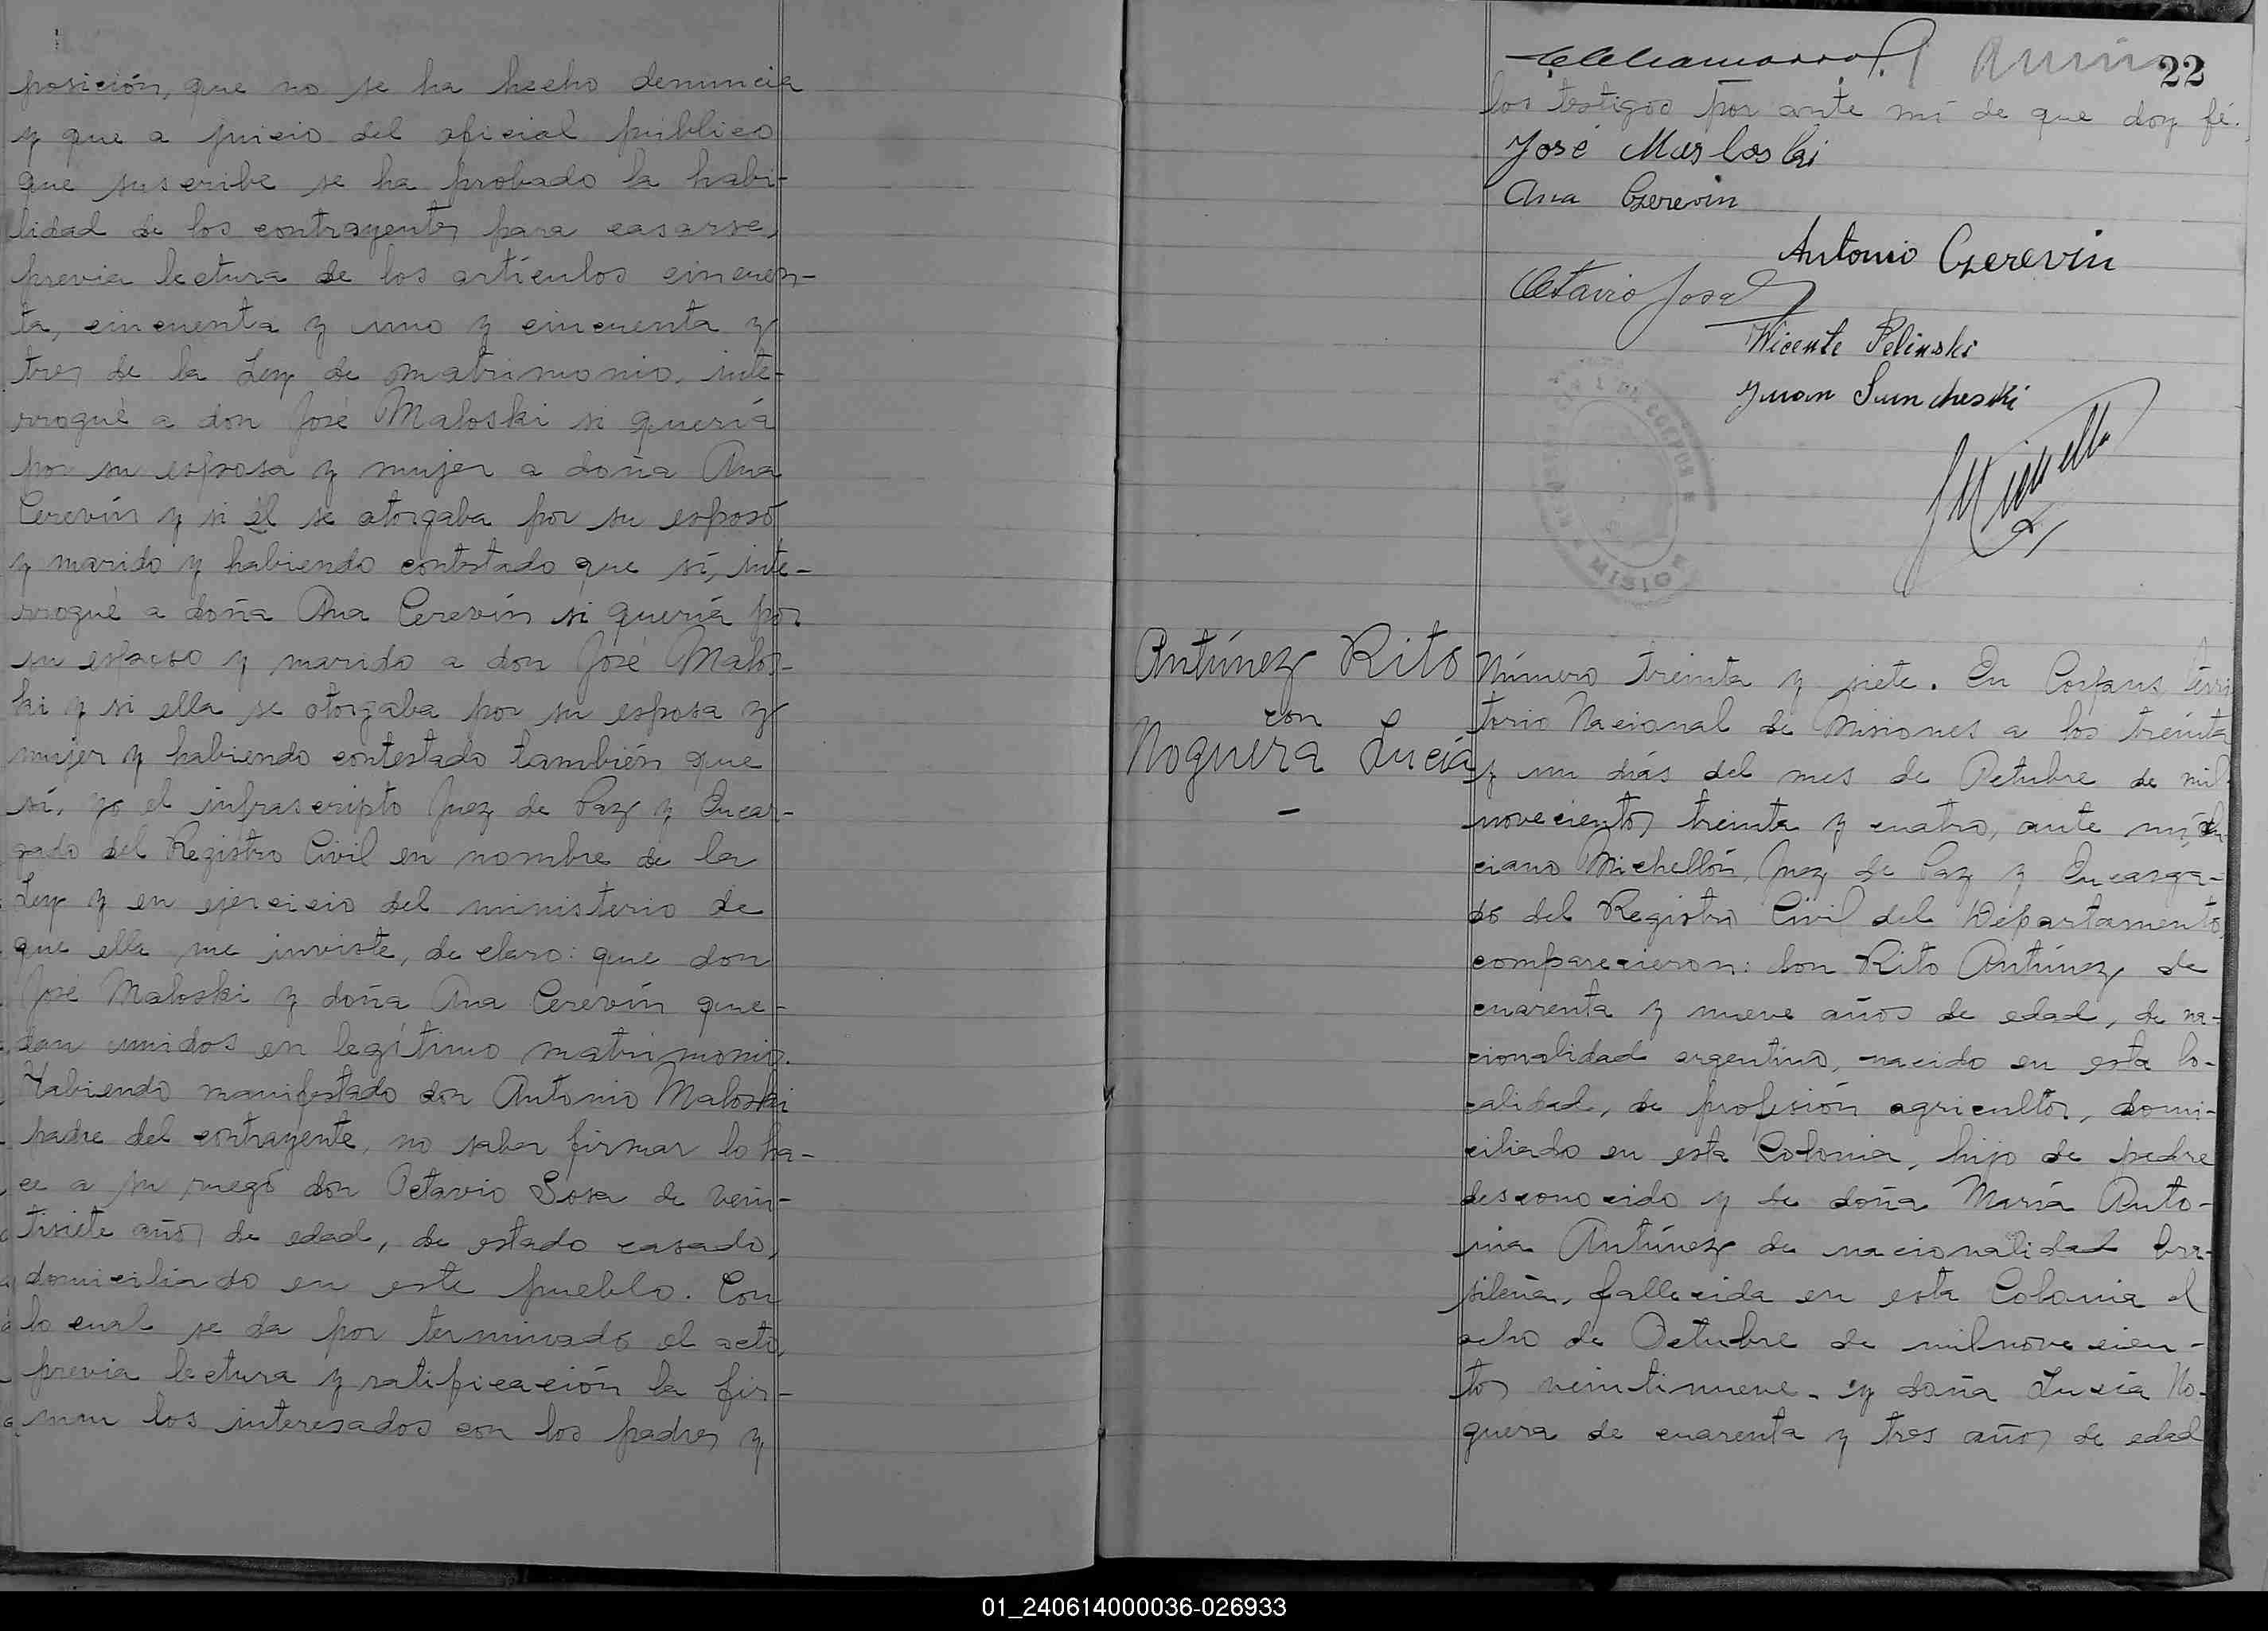 posición, que no se ha hecho denuncia
y que a juicio del oficial público
que suscribe se ha probado la habi-
lidad de los contrayentes para casarse,
previa lectura de los artículos cincuen-
ta, cincuenta y uno y cincuenta y
tres de la Ley de matrimonio, inte-
rrogué a don José Maloski si quería
por su esposa y mujer a doña Ana
Cerevín y si él se otorgaba por su esposo
y marido y habiendo contestado que sí, inte-
rrogué a doña Ana Cerevín si quería por
su esposo y marido a don José Malos-
ki y si ella se otorgaba por su esposa y
mujer y habiendo contestado también que
sí, yo el infrascripto Juez de Paz y Encar-
gado del Registro Civil en nombre de la
Ley y en ejercicio del ministerio de
que ella me inviste, declaro: que don
José Maloski y doña Ana Cerevín que-
dan unidos en legítimo matrimonio.
Habiendo manifestado don Antonio Maloski
padre del contrayente, no saber firmar lo ha-
ce a su ruego don Octavio Sosa de vein-
tisiete años de edad, de estado casado,
domiciliado en este pueblo. Con
lo cual se da por terminado el acto,
previa lectura y ratificación la fir-
man los interesados con los padres y
22
los testigos por ante mí de que doy fé.
José Masloski
Ana Czerevin
Antonio Czerevin
Octavio Sosa
Wicente Pelinski
Juan Suncheski
MISIO
Antúnez Rito
con
Noguera Lucía
-
Número treinta y siete. En Corpus, terri
torio Nacional de Misiones a los treinta
y un días del mes de Octubre de mil
novecientos treinta y cuatro, ante mí,
ciano Michellón, Juez de Paz y Encarga-
do del Registro Civil del Departamento,
comparecieron: don Rito Antúnez de
cuarenta y nueve años de edad, de na-
cionalidad argentino, nacido en esta lo-
calidad, de profesión agricultor, domi-
ciliado en esta Colonia, hijo de padre
desconocido y de doña María Anto-
nia Antúnez de nacionalidad bra-
sileña, fallecida en esta Colonia el
ocho de Octubre de milnovecien-
tos veintinueve. y doña Lucía No-
guera de cuarenta y tres años de edad
01_240614000036-026933